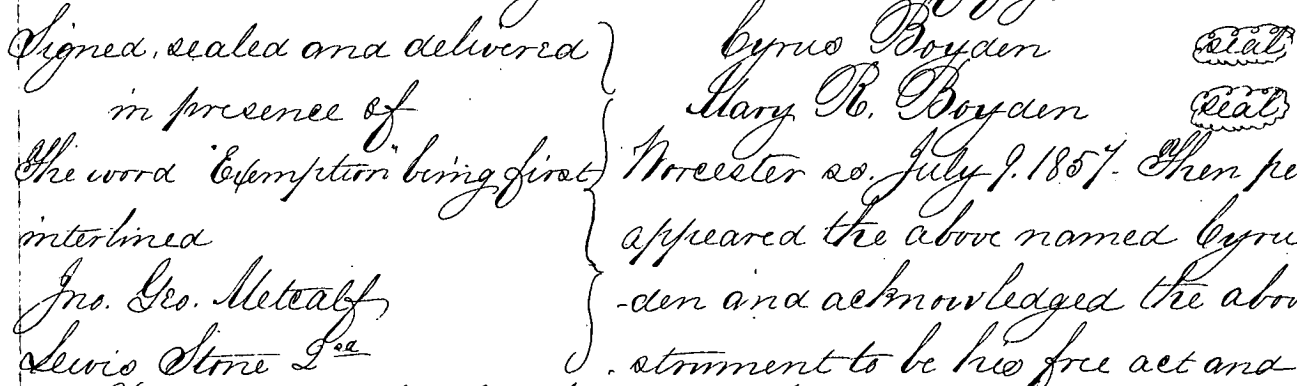 Signed, sealed and delivered
in presence of
The word "Exemption" being first
interlined
Jno. Geo. Metcalf
Lewis Stone 2nd
Cyrus Boyden seal
Mary R. Boyden seal
Worcester ss. July 9. 1857. Then pe
appeared the above named Cyru
-den and acknowledged the abov
strument to be his free act and